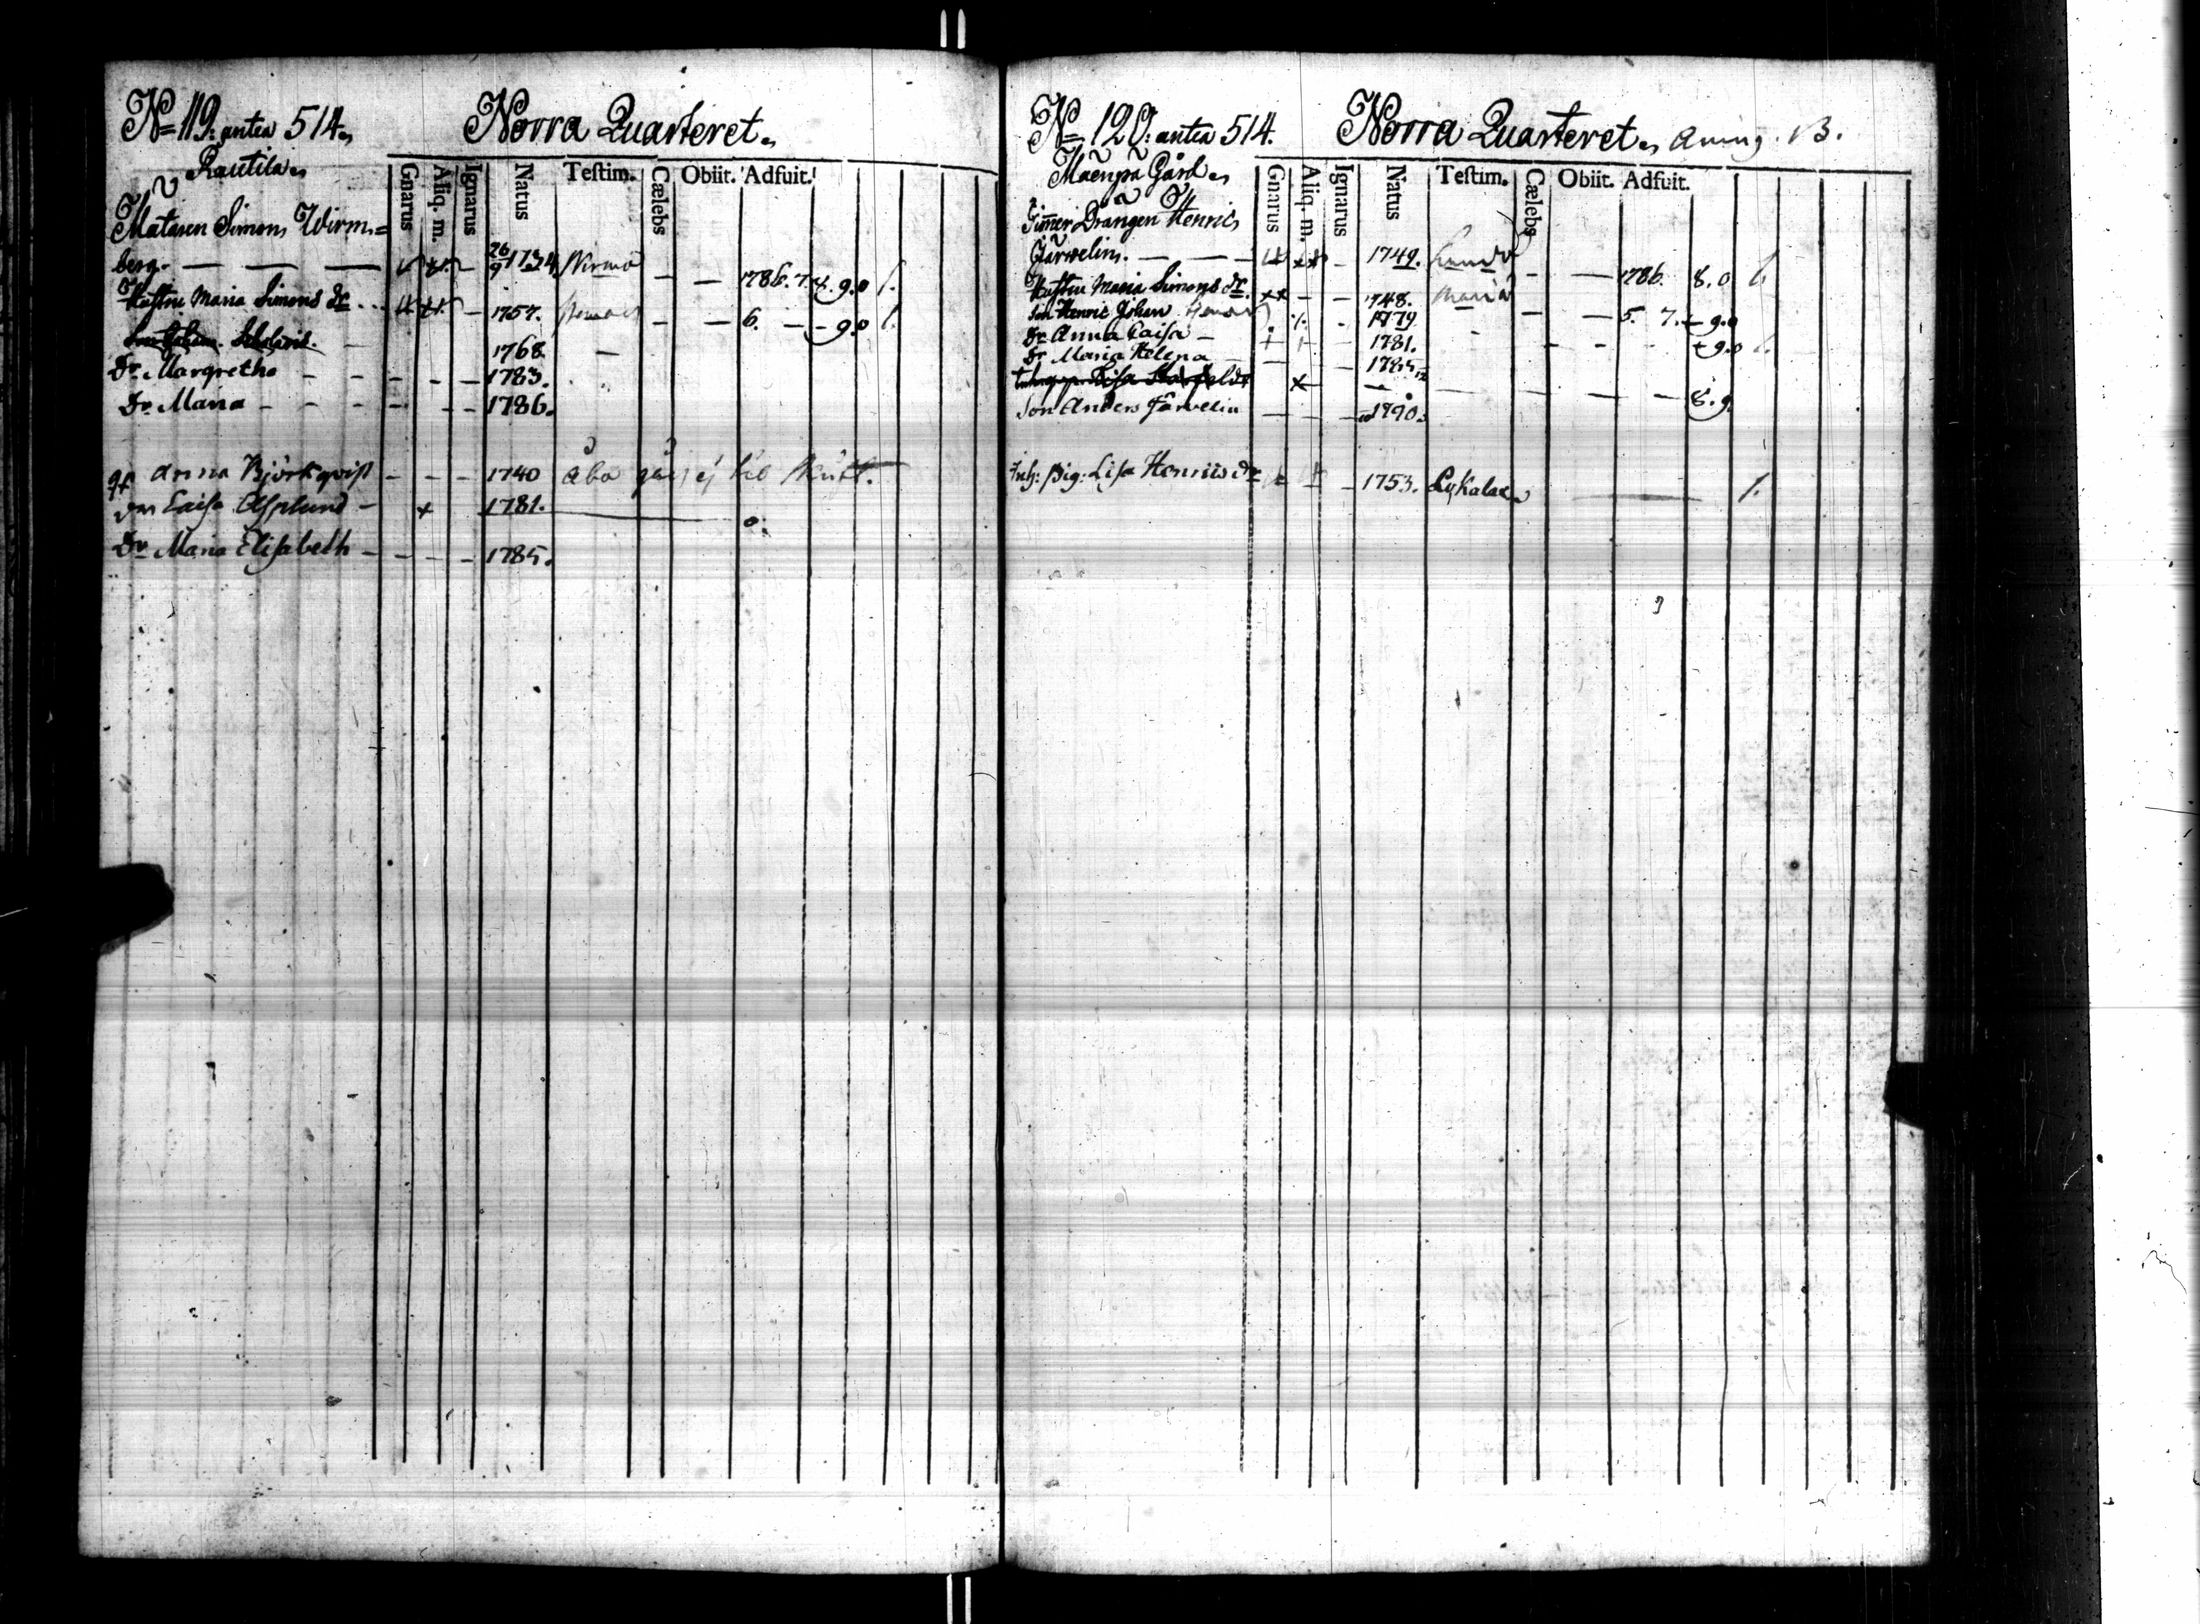 No 119. antea 514.
Norra Quarteret.
Rautila
Gnarus Aliq. m. Ignarus Natus Testim. Cælebs Obiit. Adfuit.
Matasen Simon Wirm=
berg. — — — 26/9 1734 Wirmo — — 1786. 7. 8. 9. 0 1.
Hustru Maria Simons dr 1757. — — 6. — 9. 0 1.
Son Johan 1768. —
Dr. Margretha - - - - - 1783.
Dr. Maria - - - - - - 1786.
Anna Björkqvist - - - 1740 Åbo
Caisa Asplund - + 1781. — 0.
Dr Maria Elisabeth - - - - 1785.
No 120. antea 514.
Norra Quarteret. B.
Mäenpä Gård
Gnarus Aliq. m. Ignarus Natus Testim. Cælebs Obiit. Adfuit.
Drängen Henric
Järvelin. — — 1749. - — 1786. 8. 0 1.
Hustru Maria Simons dr. - - 1748. Maria — — 5. 7. - 9. 0
Son Henric Johan - 1779
Dr Anna Caisa - 1781. - - - 9. 0 1.
Dr Maria Helena — 1785
Lisa — — — — 8. 9.
Son Anders Järvelin — — 1790.
Inh: Pig: Lisa Henrics dr - 1753. Lokalax — 1.